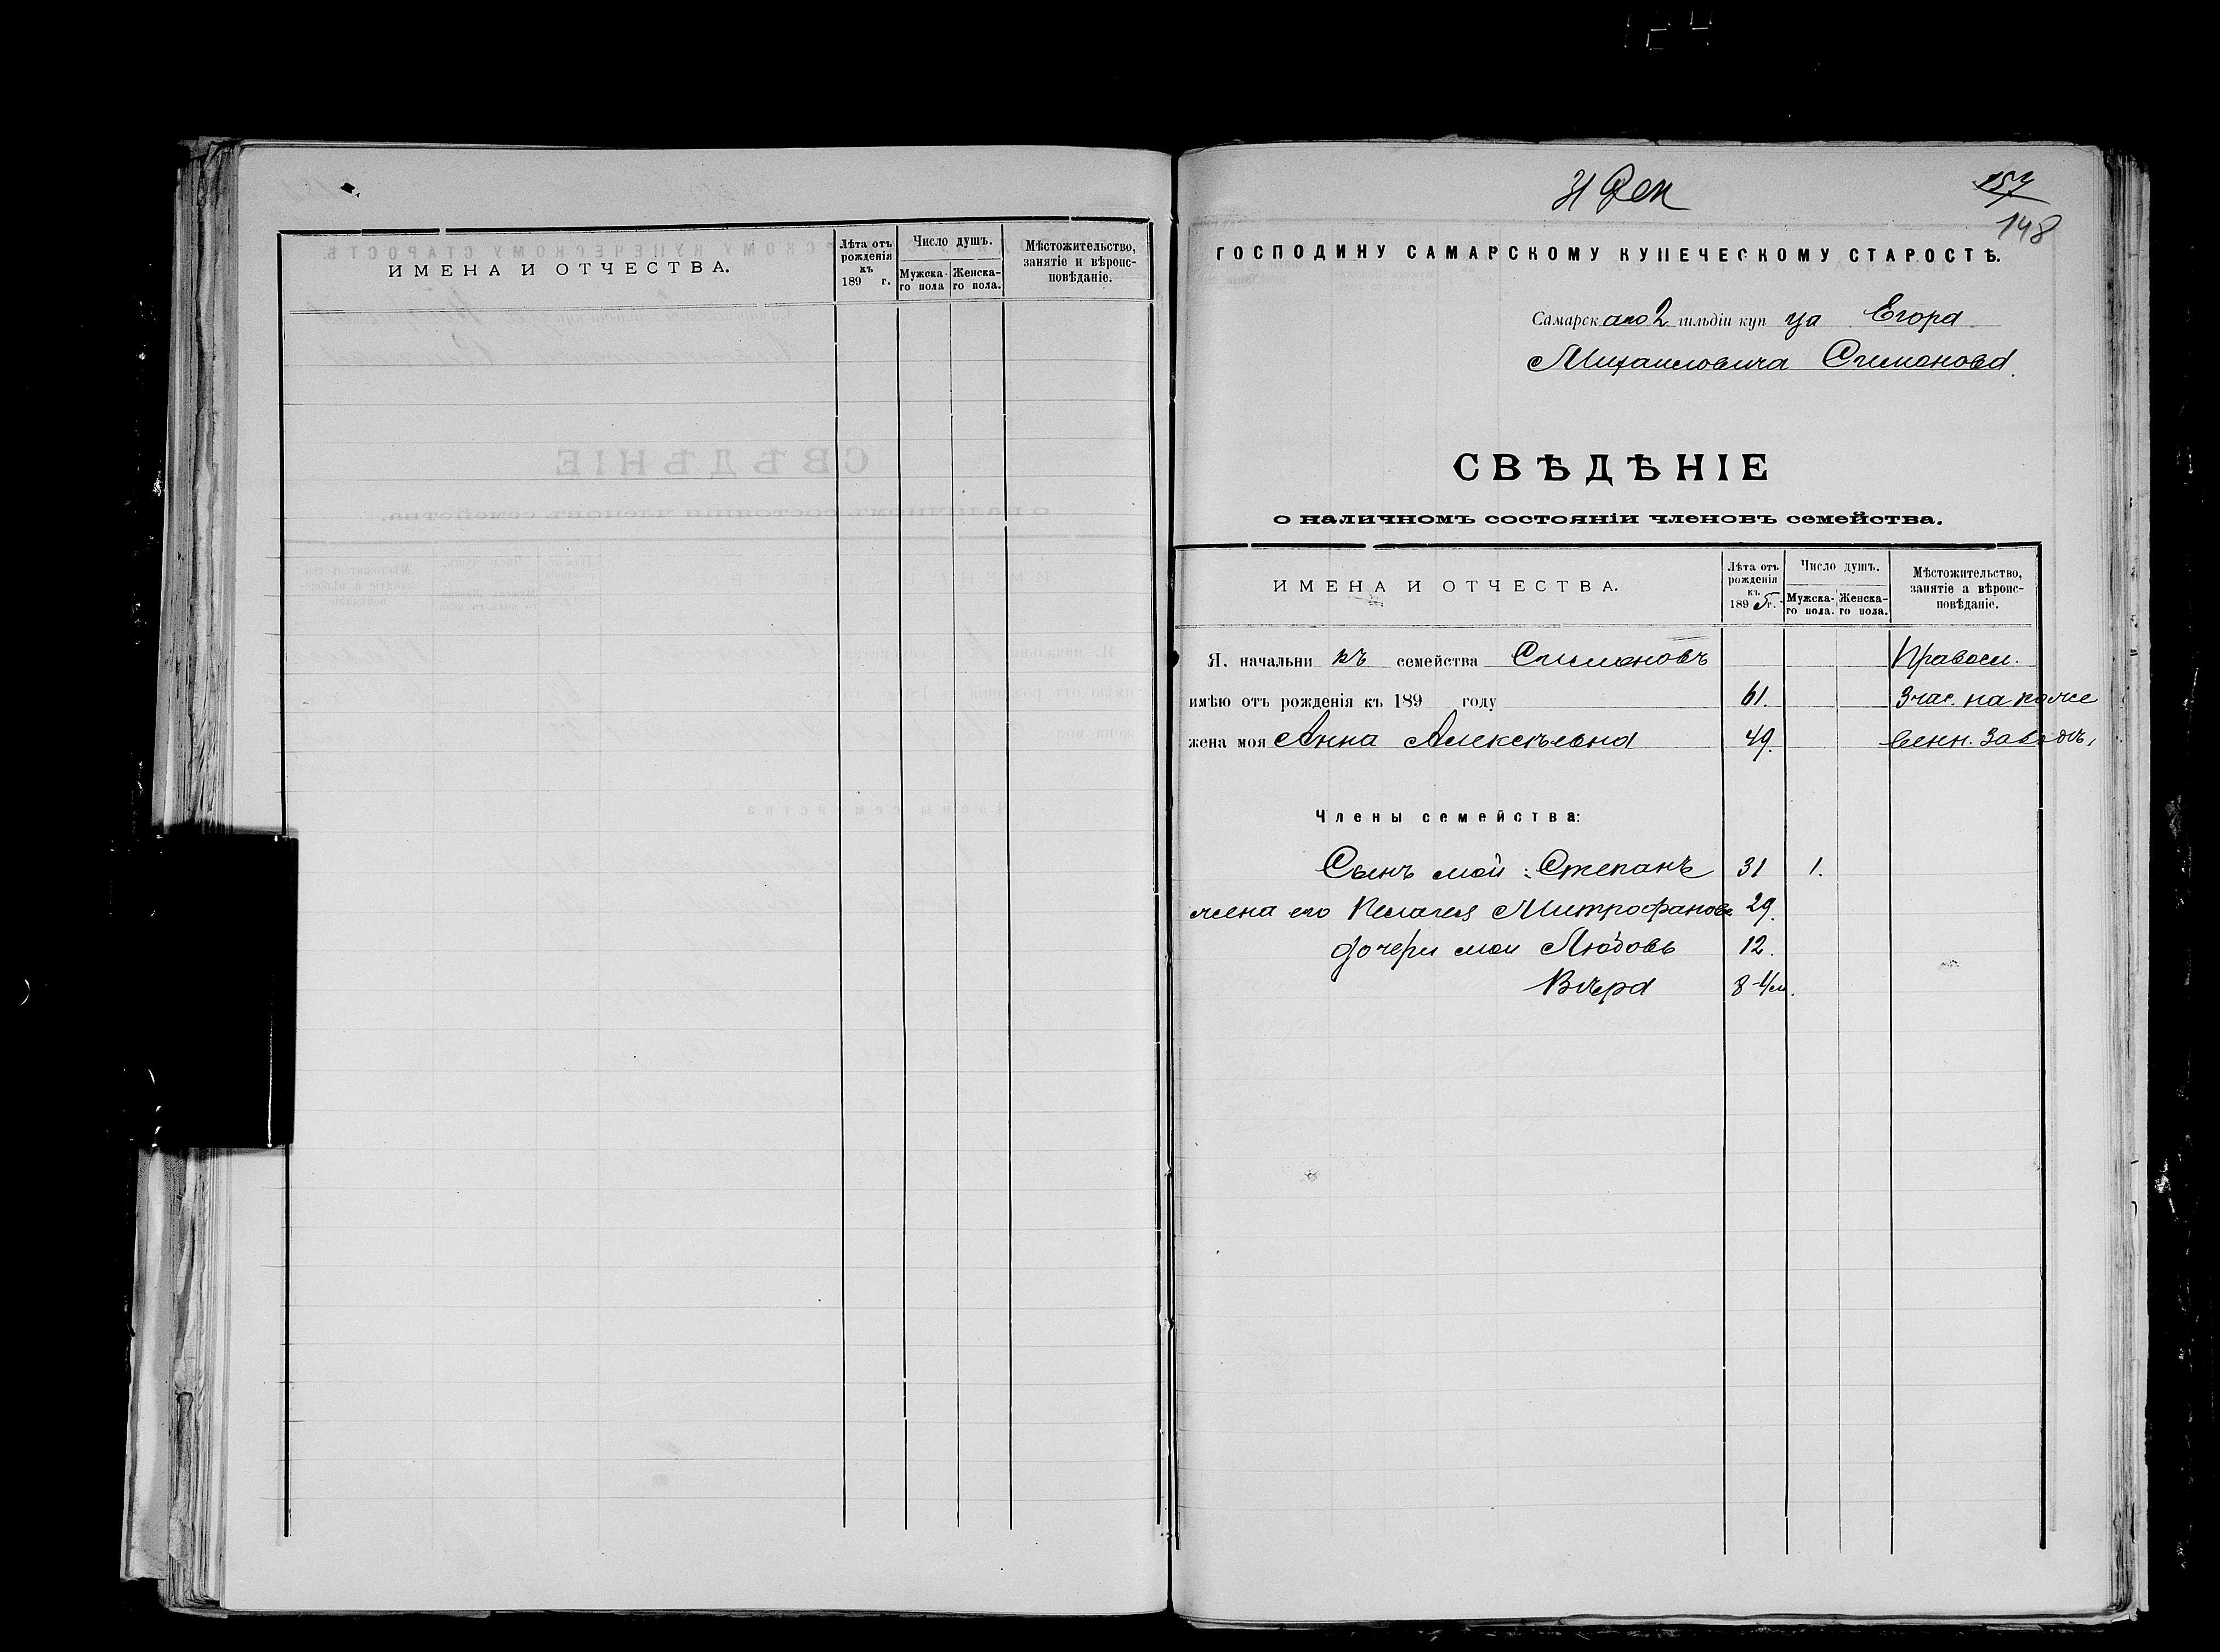 ИМЕНА И ОТЧЕСТВА.
Лѣта отъ рожденія къ 189 г.
Число душъ.
Мужска-го пола
Женска-го пола.
Мѣстожительство, занятіе и вѣроис-повѣданіе.
31 Дек
157
148
ГОСПОДИНУ САМАРСКОМУ КУПЕЧЕСКОМУ СТАРОСТѢ.
Самарскаго 2 гильдіи купца Егора
Михаиловича
СВѢДѢНІЕ
о наличномъ состояніи членовъ семейства.
ИМЕНА И ОТЧЕСТВА.
Лѣта отъ рожденія къ 1895 г.
Число душъ.
Мужска-го пола.
Женска-го пола.
Мѣстожительство, занятіе а вѣроис-повѣданіе.
Я. начальникъ семейства Правосл.
имѣю отъ рожденія къ 189 году 61. 3 час. на
жена моя Анна Алексѣевна 49. заводѣ,
Члены семейства:
Сынъ мой: Степанъ 31 1.
жена его Пелагея Митрофанов. 29.
дочери мои Любовь 12.
Вѣра 8